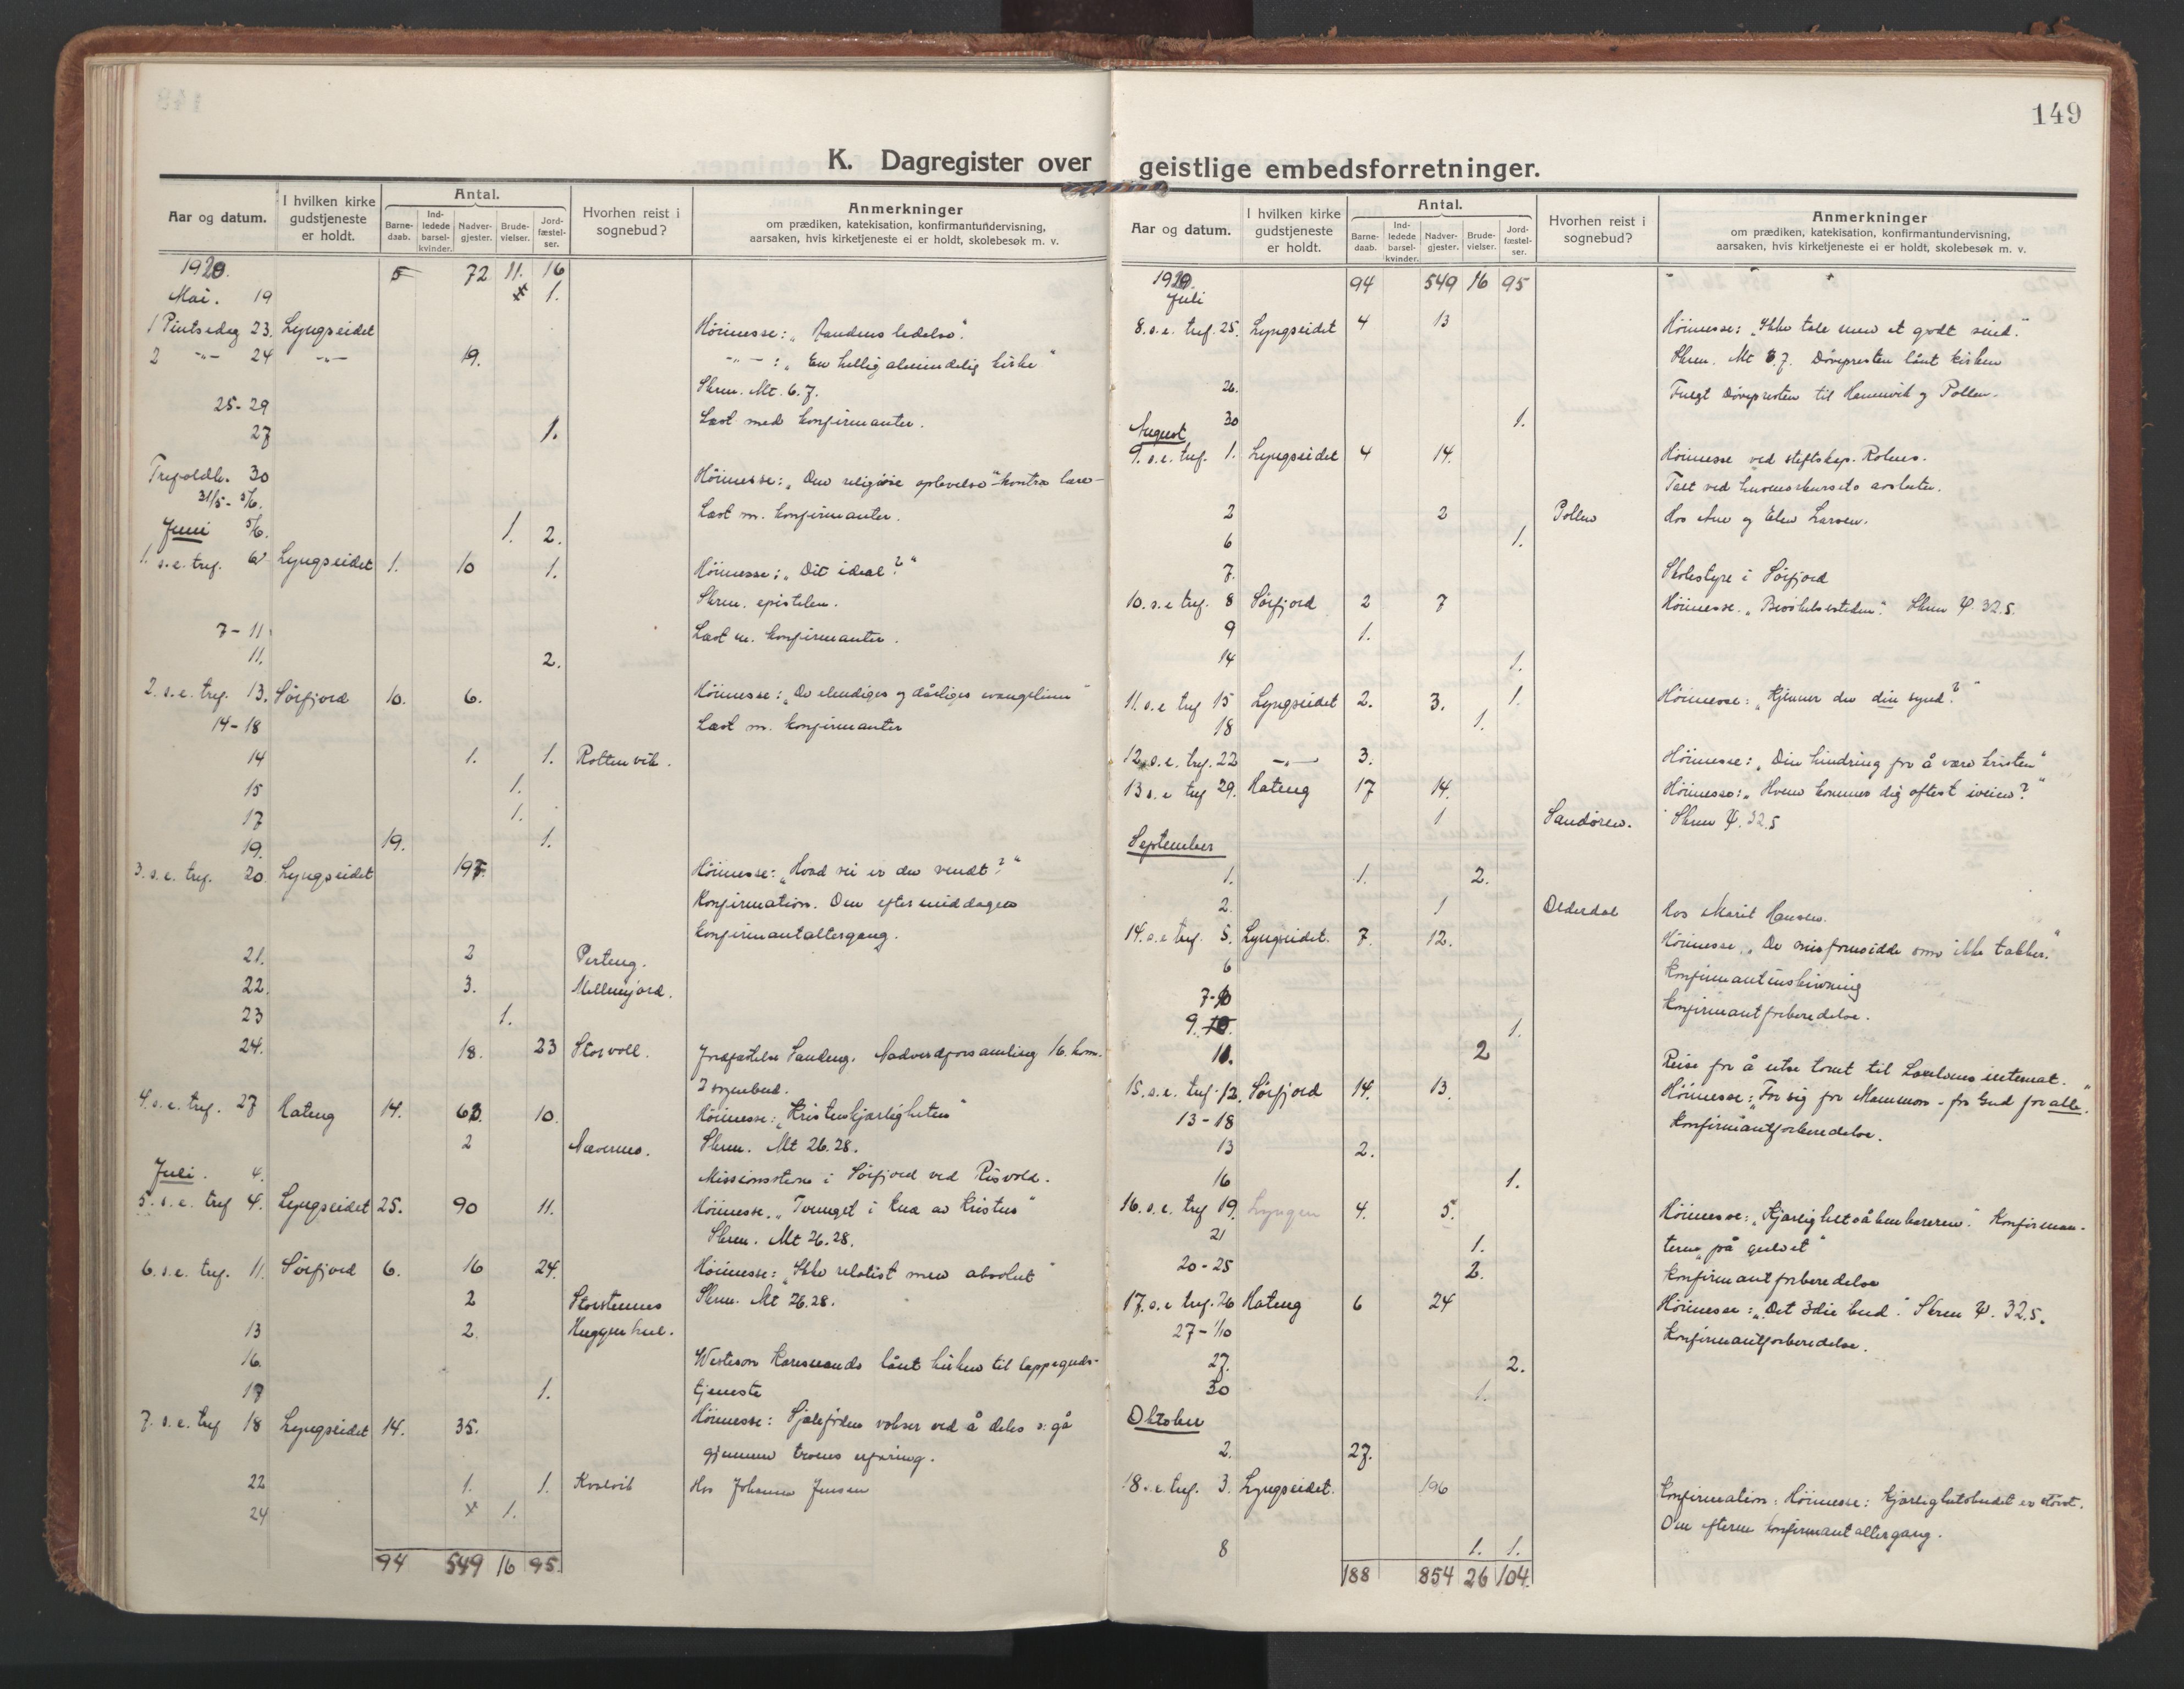 149
K. Dagregister over
Aar og datum.
I hvilken kirke gudstjeneste er holdt.
Antal.
Barne-daab.
Ind-ledede barsel-kvinder.
Nadver-gjester.
Brude-vielser.
Jord-fæstel-ser.
Hvorhen reist i sognebud?
Anmerkninger
om prædiken, katekisation, konfirmantundervisning,
aarsaken, hvis kirketjeneste ei er holdt, skolebesøk m. v.
1920. 5 72 11. 16
Mai. 19 1.
1 Pintsedag 23. Lyngseidet Höimesse: „Aandens ledelse".
2 -"- 24 -"- 19. -"- : „En hellig almindelig kirke"
Skrm. Mt. 6.7.
25-29 Læst med konfirmanter.
27 1.
Trefoldh. 30 Höimesse: „Den religiöse oplevelse"-kontra lære-
31/5 - 5/6. Læst m. konfirmanter.
Juni 5/6. 1. 2.
1. s.e. tref. 6 Lyngseidet 1. 10 1. Höimesse: „Dit ideal?"
Skrm. epistelen.
7-11. Læst m. konfirmanter.
11. 2.
2. s.e. tref. 13. Sörfjord 10. 6. Höimesse: „De elendiges og dårliges evangelium"
14-18 Læst m. konfirmanter
14 1. 1. Rottenvik.
15 1.
17 1.
19. 19. 1.
3. s.e. tref. 20. Lyngseidet 195. Höimesse: „Hvad vei er du vendt?"
Konfirmation. Om eftermiddagen
konfirmantaltergang.
21. 2 Perteng.
22. 3. Mellemjord.
23 1.
24. 18. 23 Storvoll. Jordfæstelse Sandeng. Nadverdforsamling 16. kom.
2 sognebud.
4. s.e. tref. 27 Hateng 14. 63. 10. Höimesse: „Kristenkjærligheten"
2 Nævernes. Skrm. Mt 26.28.
Juli. 4. Missionsstevne i Sörfjord ved Risvold.
5. s.e. tref 4. Lyngseidet 25. 90 11. Höimesse. „Tvunget i knæ av Kristus"
Skrm. Mt 26.28.
6. s.e. tref. 11. Sörfjord 6. 16 24. Höimesse: „Ikke relativt men absolut"
2 Storstennes Skrm. Mt 26.28.
13 2. Huggenhul.
16. Karesuando lånt kirken til lappeguds-
17 1. tjeneste
7. s.e. tref 18 Lyngseidet 14. 35. Höimesse: Sjæleföden vokser ved å deles o: gå
gjennem troens erfaring.
22 1. 1. Kvalvik Hos Johanna Jensen
24 1.
94 549 16 95.
geistlige embedsforretninger.
Aar og datum.
I hvilken kirke gudstjeneste er holdt.
Antal.
Barne-daab.
Ind-ledede barsel-kvinder.
Nadver-gjester.
Brude-vielser.
Jord-fæstel-ser.
Hvorhen reist i sognebud?
Anmerkninger
om prædiken, katekisation, konfirmantundervisning,
aarsaken, hvis kirketjeneste ei er holdt, skolebesøk m. v.
1920. 94 549 16 95
Juli
8. s.e. tref. 25. Lyngseidet 4 13 Höimesse: „Ikke tale men et godt sind."
Skrm. Mt 6.7. Dövepresten lånt kirken
26. Fulgt Dövepresten til Hamnvik og Pollen.
30 1.
August
9. s.e. tref. 1. Lyngseidet 4 14. Höimesse ved stiftskap. Rolnes.
Talt ved husmorkursets avsluten.
2 2 Pollen Hos Ane og Elen Larsen.
6 1.
7. Skolestyre i Sörfjord
10. s.e tref. 8 Sörfjord 2 7 Höimesse. „Besökelsestiden". Skrm Ψ. 32.5.
9 1.
14 1.
11. s.e tref 15 Lyngseidet 2. 3. 1. Höimesse: „Kjenner du din synd?"
18 1.
12. s.e. tref. 22 -"- 3. Höimesse: „Din hindring for å være kristen"
13 s.e tref 29. Hateng 17 14. Höimesse: „Hvem kommer dig oftest iveien?"
1 Sandören. Skrm Ψ. 32.5
September
1. 1. 2.
2. 1 Olderdal Hos Marit Hansen.
14. s.e tref. 5. Lyngseidet. 7. 12. Höimesse. „De misfornöidde som ikke takker."
6 Konfirmantinskrivning
7-10 Konfirmantforberedelse.
9. 10. 1.
11. 2 Reise for å utse tomt til internat.
15. s.e. tref. 12. Sörfjord 14. 13. Höimesse: „For sig for Mammon - for Gud for alle."
13-18 Konfirmantforberedelse.
13 2.
16 1.
16. s.e. tref 19. Lyngen 4. 5. Höimesse: „Kjærlighetsåbenbareren". Konfirman-
21 1. terne „på gulvet"
20-25 2. Konfirmantforberedelse
17. s.e tref. 26 Hateng 6 24 Höimesse: „Det 3die bud". Skrm Ψ. 32.5.
27-1/10 Konfirmantforberedelse.
27. 2.
30 1.
Oktober
2. 27.
18. s.e. tref. 3. Lyngseidet. 196 Konfirmation: Höimesse: Kjærlighetsbudet er störst.
Om efterm konfirmantaltergang.
8 1. 1.
188 854 26 104.